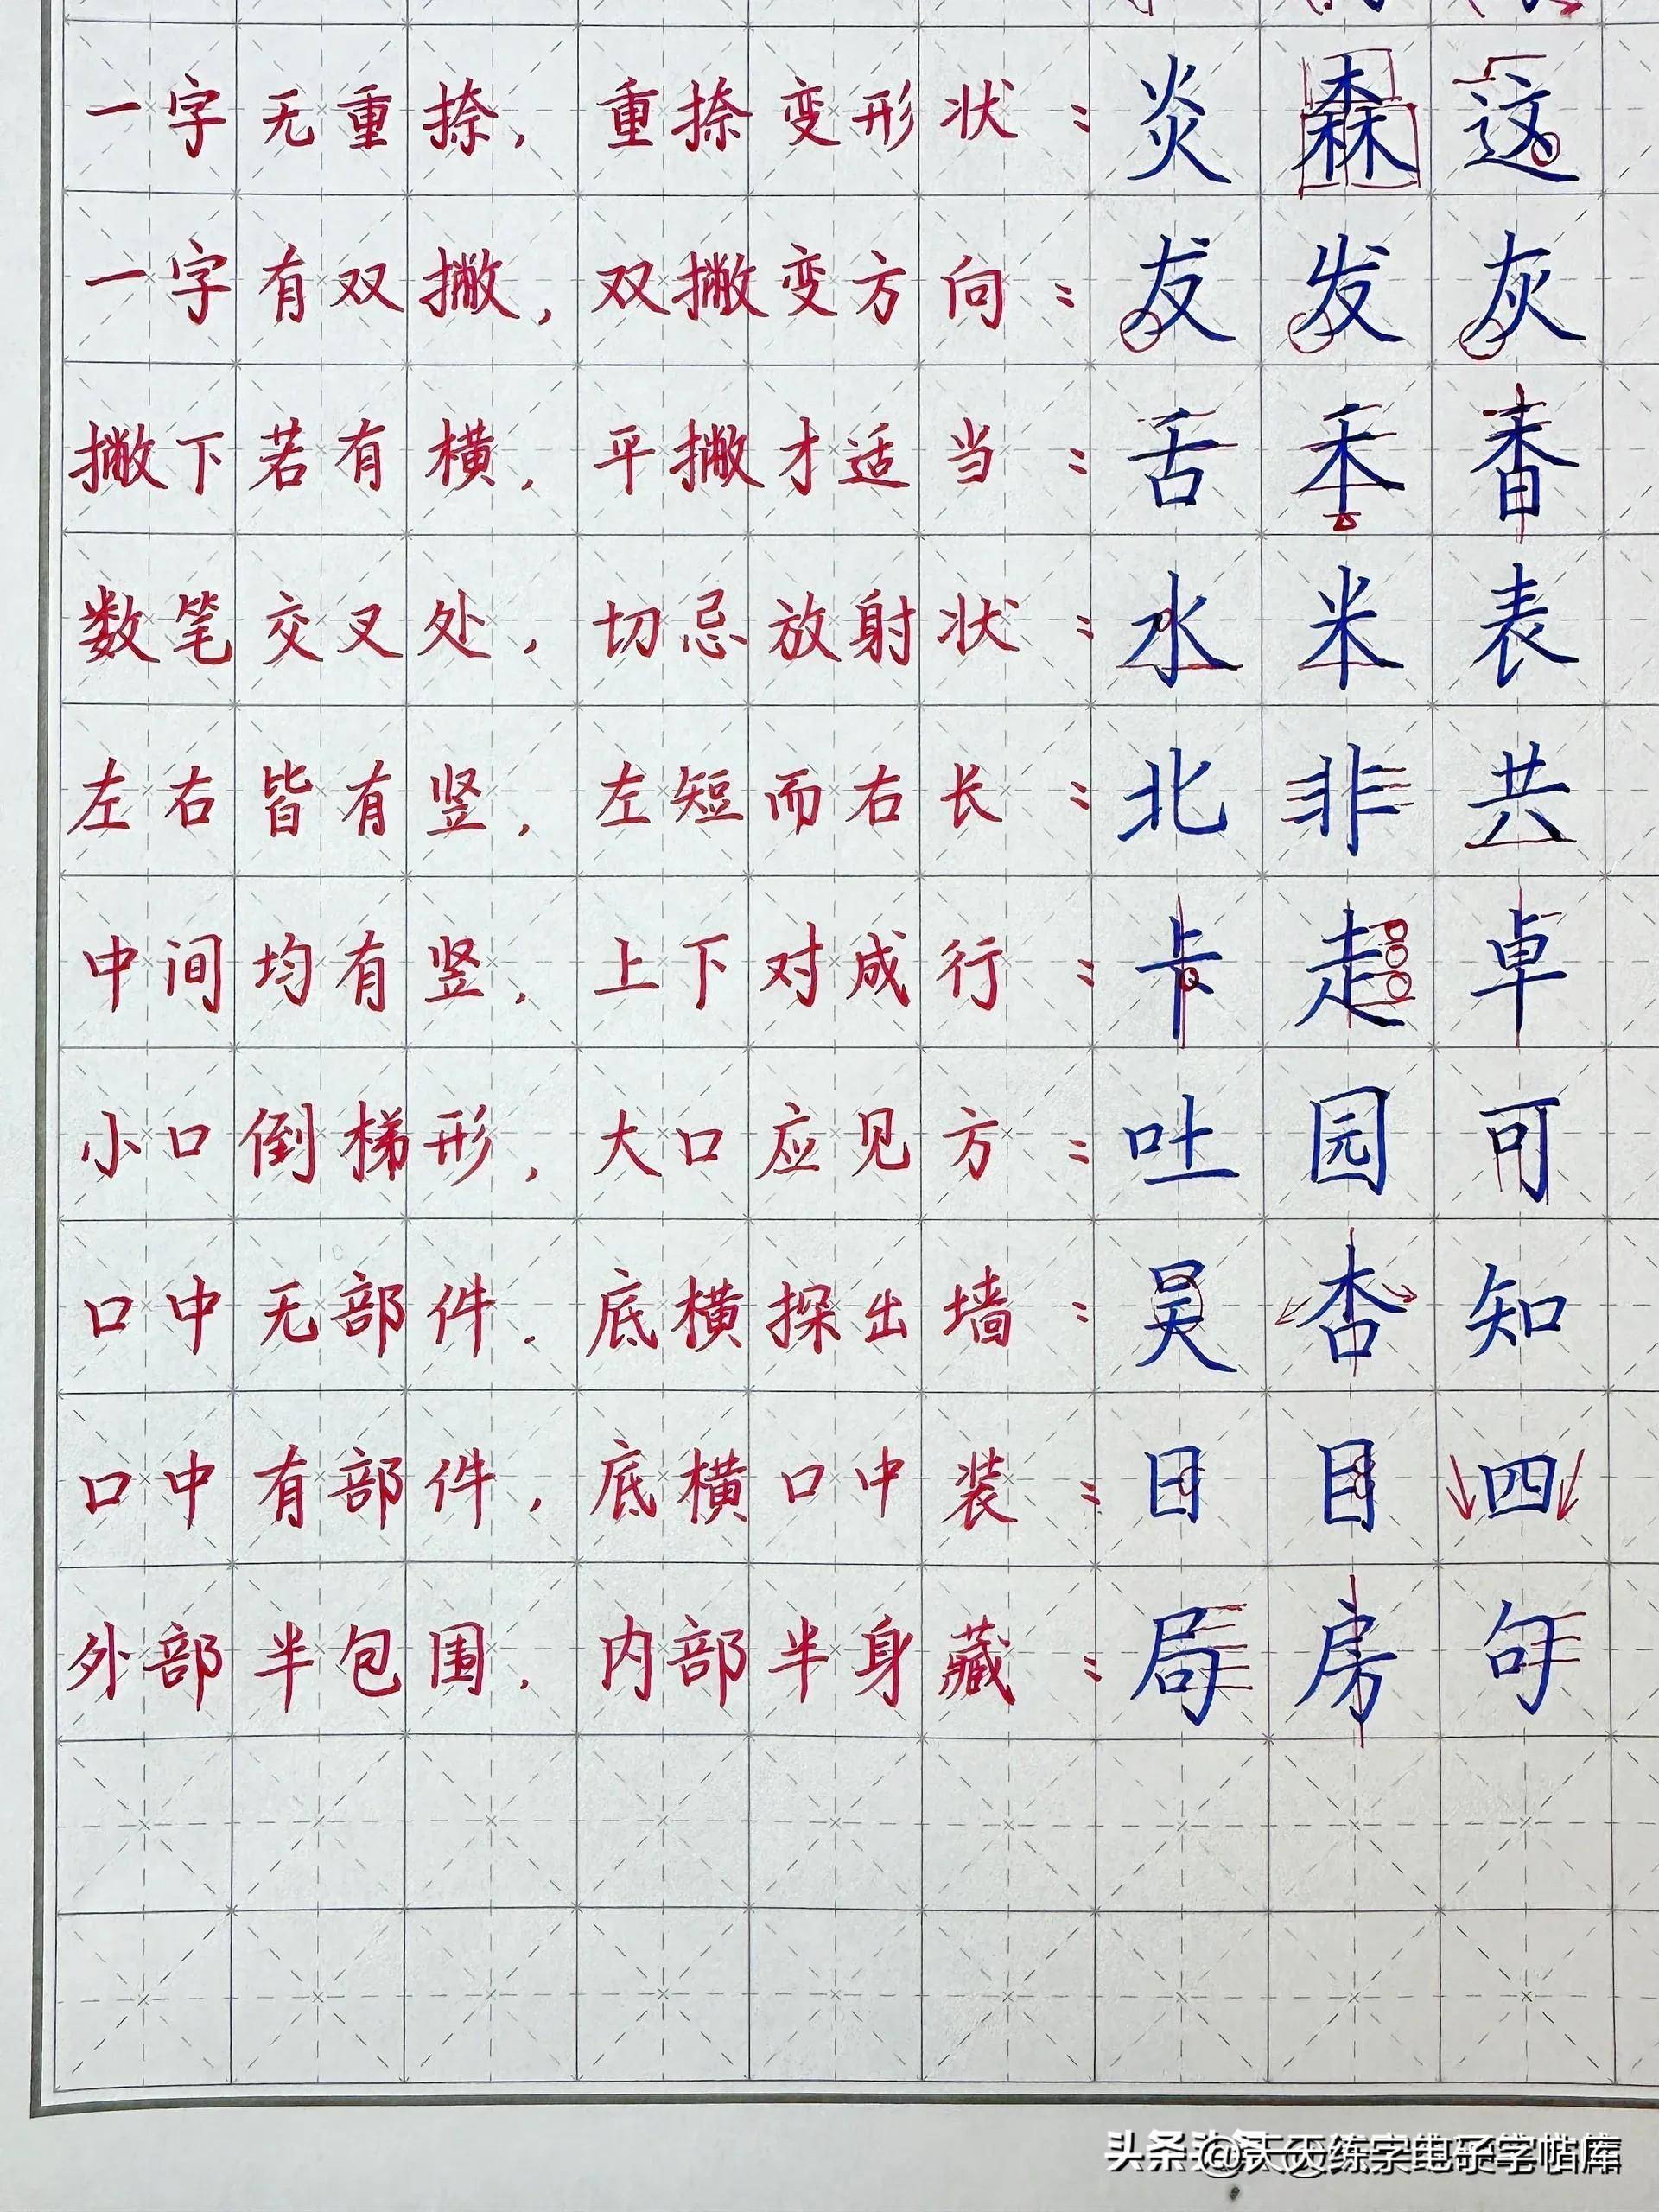 一字无重捺，重捺变形状：炎森这
一字有双撇，双撇变方向：友发灰
撇下若有横，平撇才适当：舌禾香
数笔交叉处，切忌放射状：水米表
左右皆有竖，左短而右长：北非共
中间均有竖，上下对成行：卡走卓
小口倒梯形，大口应见方：吐园可
口中无部件，底横探出墙：吴杏知
口中有部件，底横口中装：日目四
外部半包围，内部半身藏：局房句
头条 @天天练字电子字帖库